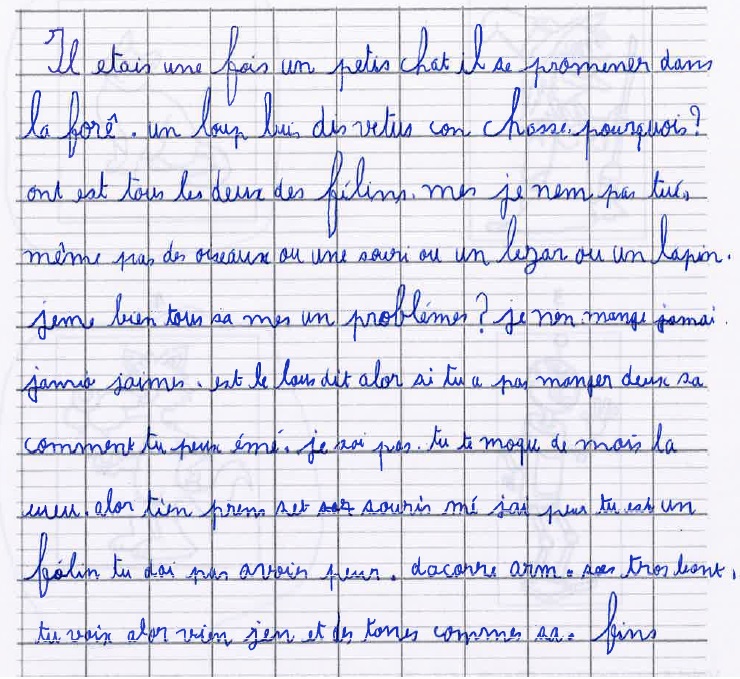 Il etais une fois un petis chat il se promener dans
la forê. un loup luis dis vetus con chasse. pourquois?
ont est tous les deux des félins. mes je nem pas tué,
même pas des oiseaux ou une souri ou un lezar ou un lapin.
jeme bien tous sa mes un problémes? je non mange jamai.
jamais jaimes. est le lous dit alor si tu a pas manger deux sa
comment tu peux émé. je sai pas. tu te moque de mois la
meu. alor tien prens set souris mé jai peur tu est un
félin tu doi pas avoir peur. dacorre arm. ses tros bont,
tu voix alor vien jen et des tones commes sa. fins